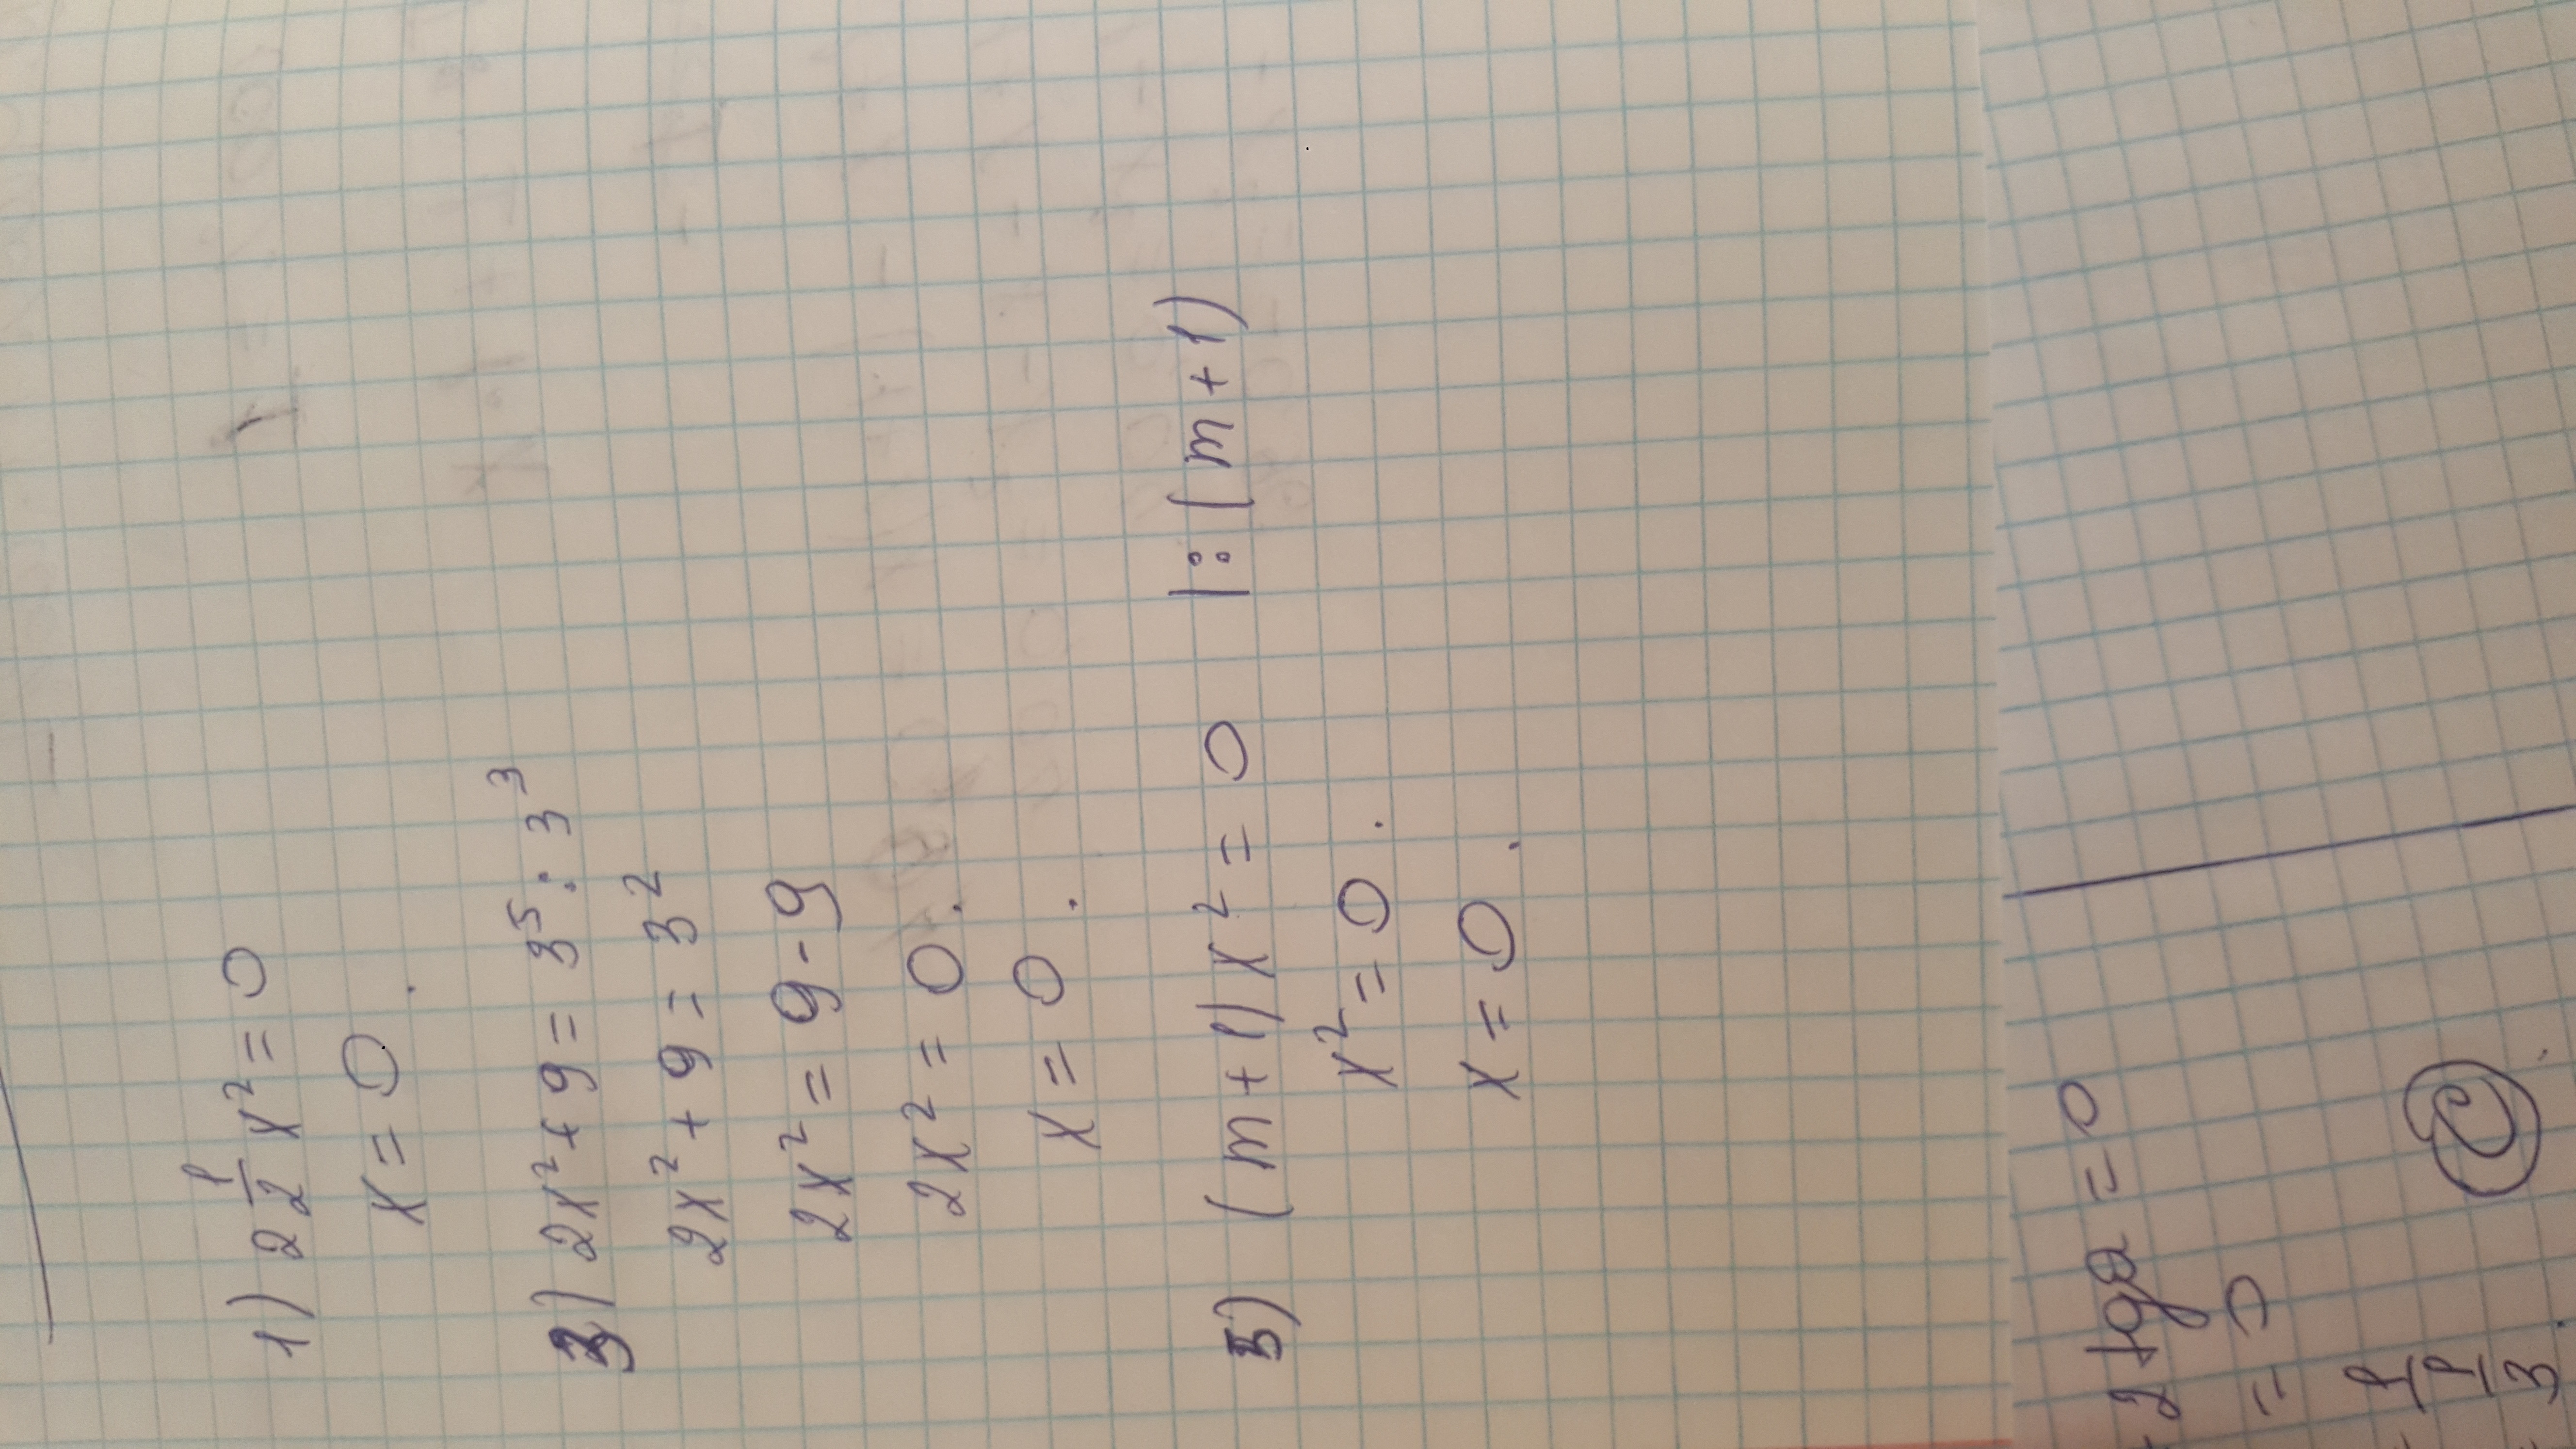 1) 2 1/2 x² = 0
x = 0.
3) 2x² + 9 = 3⁵ : 3³
2x² + 9 = 3²
2x² = 9 - 9
2x² = 0.
x = 0.
5) (m + 1) x² = 0 |: (m + 1)
x² = 0.
x = 0.
= 0